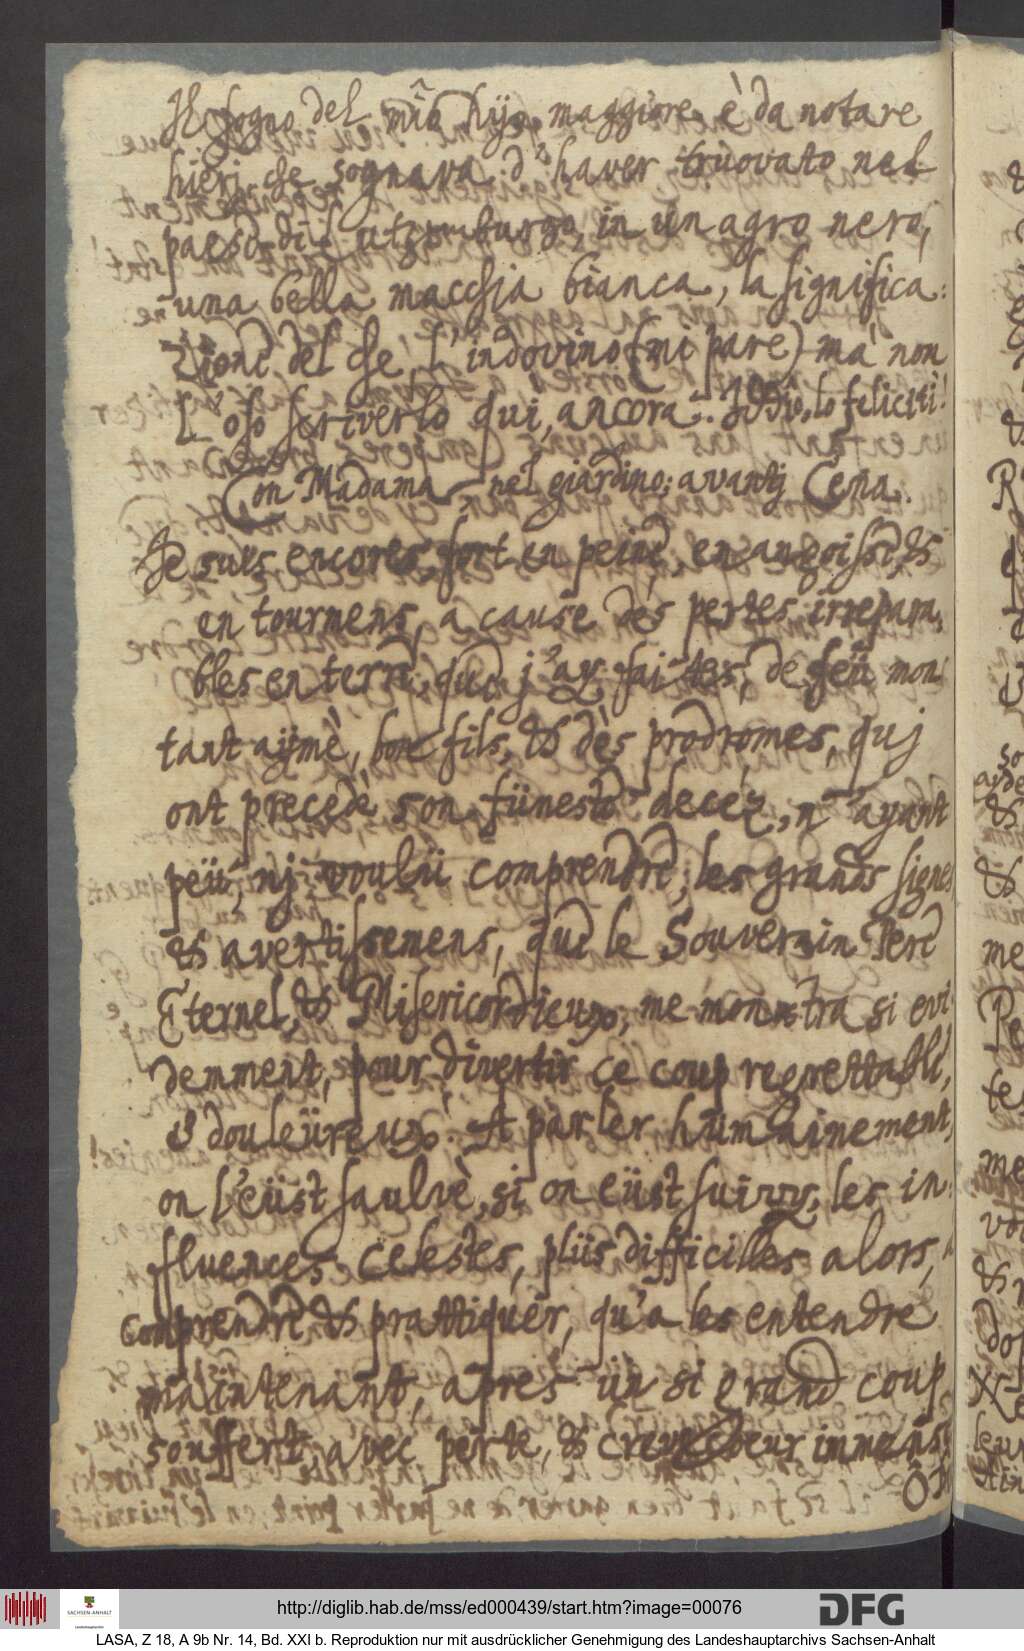 Il sogno del mio hijo maggiore è da notare
hieri che sognava d'haver truovato nel
paese di Lutzemburgo, in un agro nero,
una bella macchia bianca, la significa:
zione del che l'indovino (mi pare) mà non
l'oso scriverlo qui, ancora. Iddio, lo feliciti!
Con Madama nel giardino; avantj Cena.
Je suis encores, fort en peine, en angoisse, &
en tourmens, a cause dès pertes irrepara,
bles en terre, que j'ay faites, de feü mon
tant aymè, bon fils, & dès prodromes, quj
ont precedè son füneste decéz, n'ayant
peü, nj voulü comprendre, les grands signes
& avertissemens, que le Souverain Pere
Eternel, & Misericordieux, me monstra si evi
demment, pour divertir ce coup regrettable,
& douleüreux. A parler humainement,
on l'eüst saulvè, si on eüst suivy, les in:
ffluences Celestes, plüs difficilles alors, a
comprendre & prattiquer, qu'a les entendre
maintenant, apres ün si grand coup
souffert, avec perte, & crevecoeur immens
Ô
http://diglib.hab.de/mss/ed000439/start.htm?image=00076
DFG
SACHSEN-ANHALT
LASA, Z 18, A 9b Nr. 14, Bd. XXI b. Reproduktion nur mit ausdrücklicher Genehmigung des Landeshauptarchivs Sachsen-Anhalt